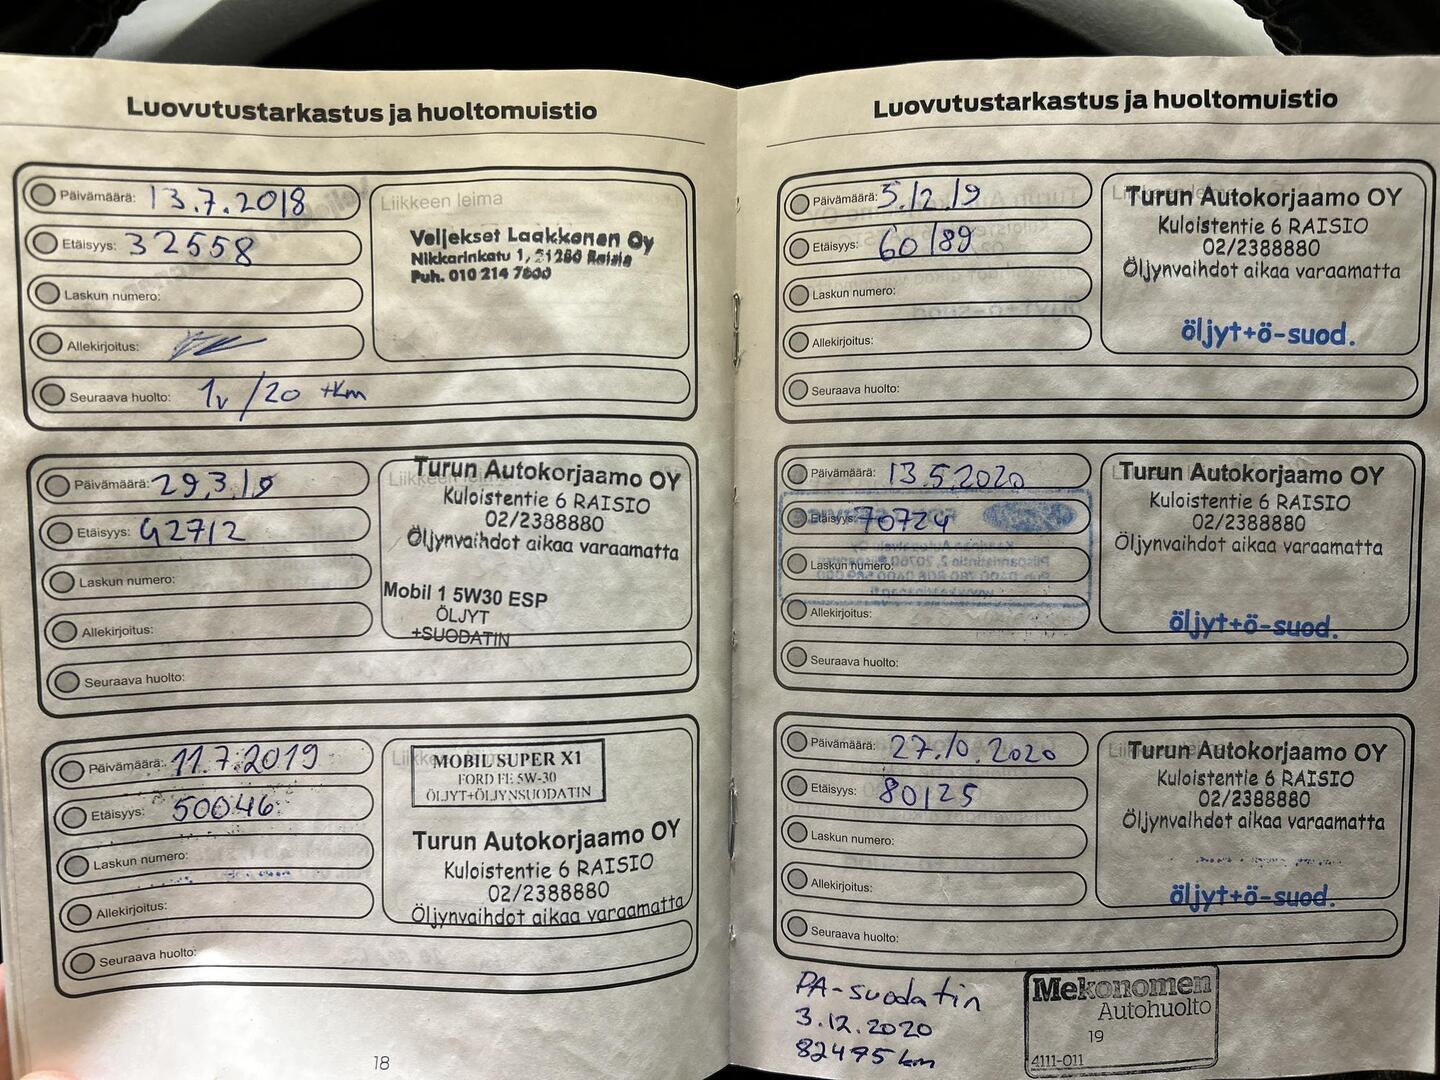 Luovutustarkastus ja huoltomuistio
Päivämäärä: 13.7.2018
Etäisyys: 32558
Laskun numero:
Allekirjoitus:
Seuraava huolto: 1v /20 tkm
Liikkeen leima
Veljekset Laakkonen Oy
Nikkarinkatu 1, 21280 Raisio
Puh. 010 214 7600
Päivämäärä: 29.3.19
Etäisyys: 42712
Laskun numero:
Allekirjoitus:
Seuraava huolto:
Liikkeen leima
Turun Autokorjaamo OY
Kuloistentie 6 RAISIO
02/2388880
Öljynvaihdot aikaa varaamatta
Mobil 1 5W30 ESP
ÖLJYT
+SUODATIN
Päivämäärä: 11.7.2019
Etäisyys: 50046
Laskun numero:
Allekirjoitus:
Seuraava huolto:
MOBIL SUPER X1
FORD FE 5W-30
ÖLJYT+ÖLJYNSUODATIN
Turun Autokorjaamo OY
Kuloistentie 6 RAISIO
02/2388880
Öljynvaihdot aikaa varaamatta
18
Luovutustarkastus ja huoltomuistio
Päivämäärä: 5.12.19
Etäisyys: 60189
Laskun numero:
Allekirjoitus:
Seuraava huolto:
Turun Autokorjaamo OY
Kuloistentie 6 RAISIO
02/2388880
Öljynvaihdot aikaa varaamatta
öljyt+ö-suod.
Päivämäärä: 13.5.2020
Etäisyys: 70724
Laskun numero:
Allekirjoitus:
Seuraava huolto:
Turun Autokorjaamo OY
Kuloistentie 6 RAISIO
02/2388880
Öljynvaihdot aikaa varaamatta
öljyt+ö-suod.
Päivämäärä: 27.10.2020
Etäisyys: 80125
Laskun numero:
Allekirjoitus:
Seuraava huolto:
Turun Autokorjaamo OY
Kuloistentie 6 RAISIO
02/2388880
Öljynvaihdot aikaa varaamatta
öljyt+ö-suod.
PA-suodatin
3.12.2020
82495 km
Mekonomen
Autohuolto
19
4111-011